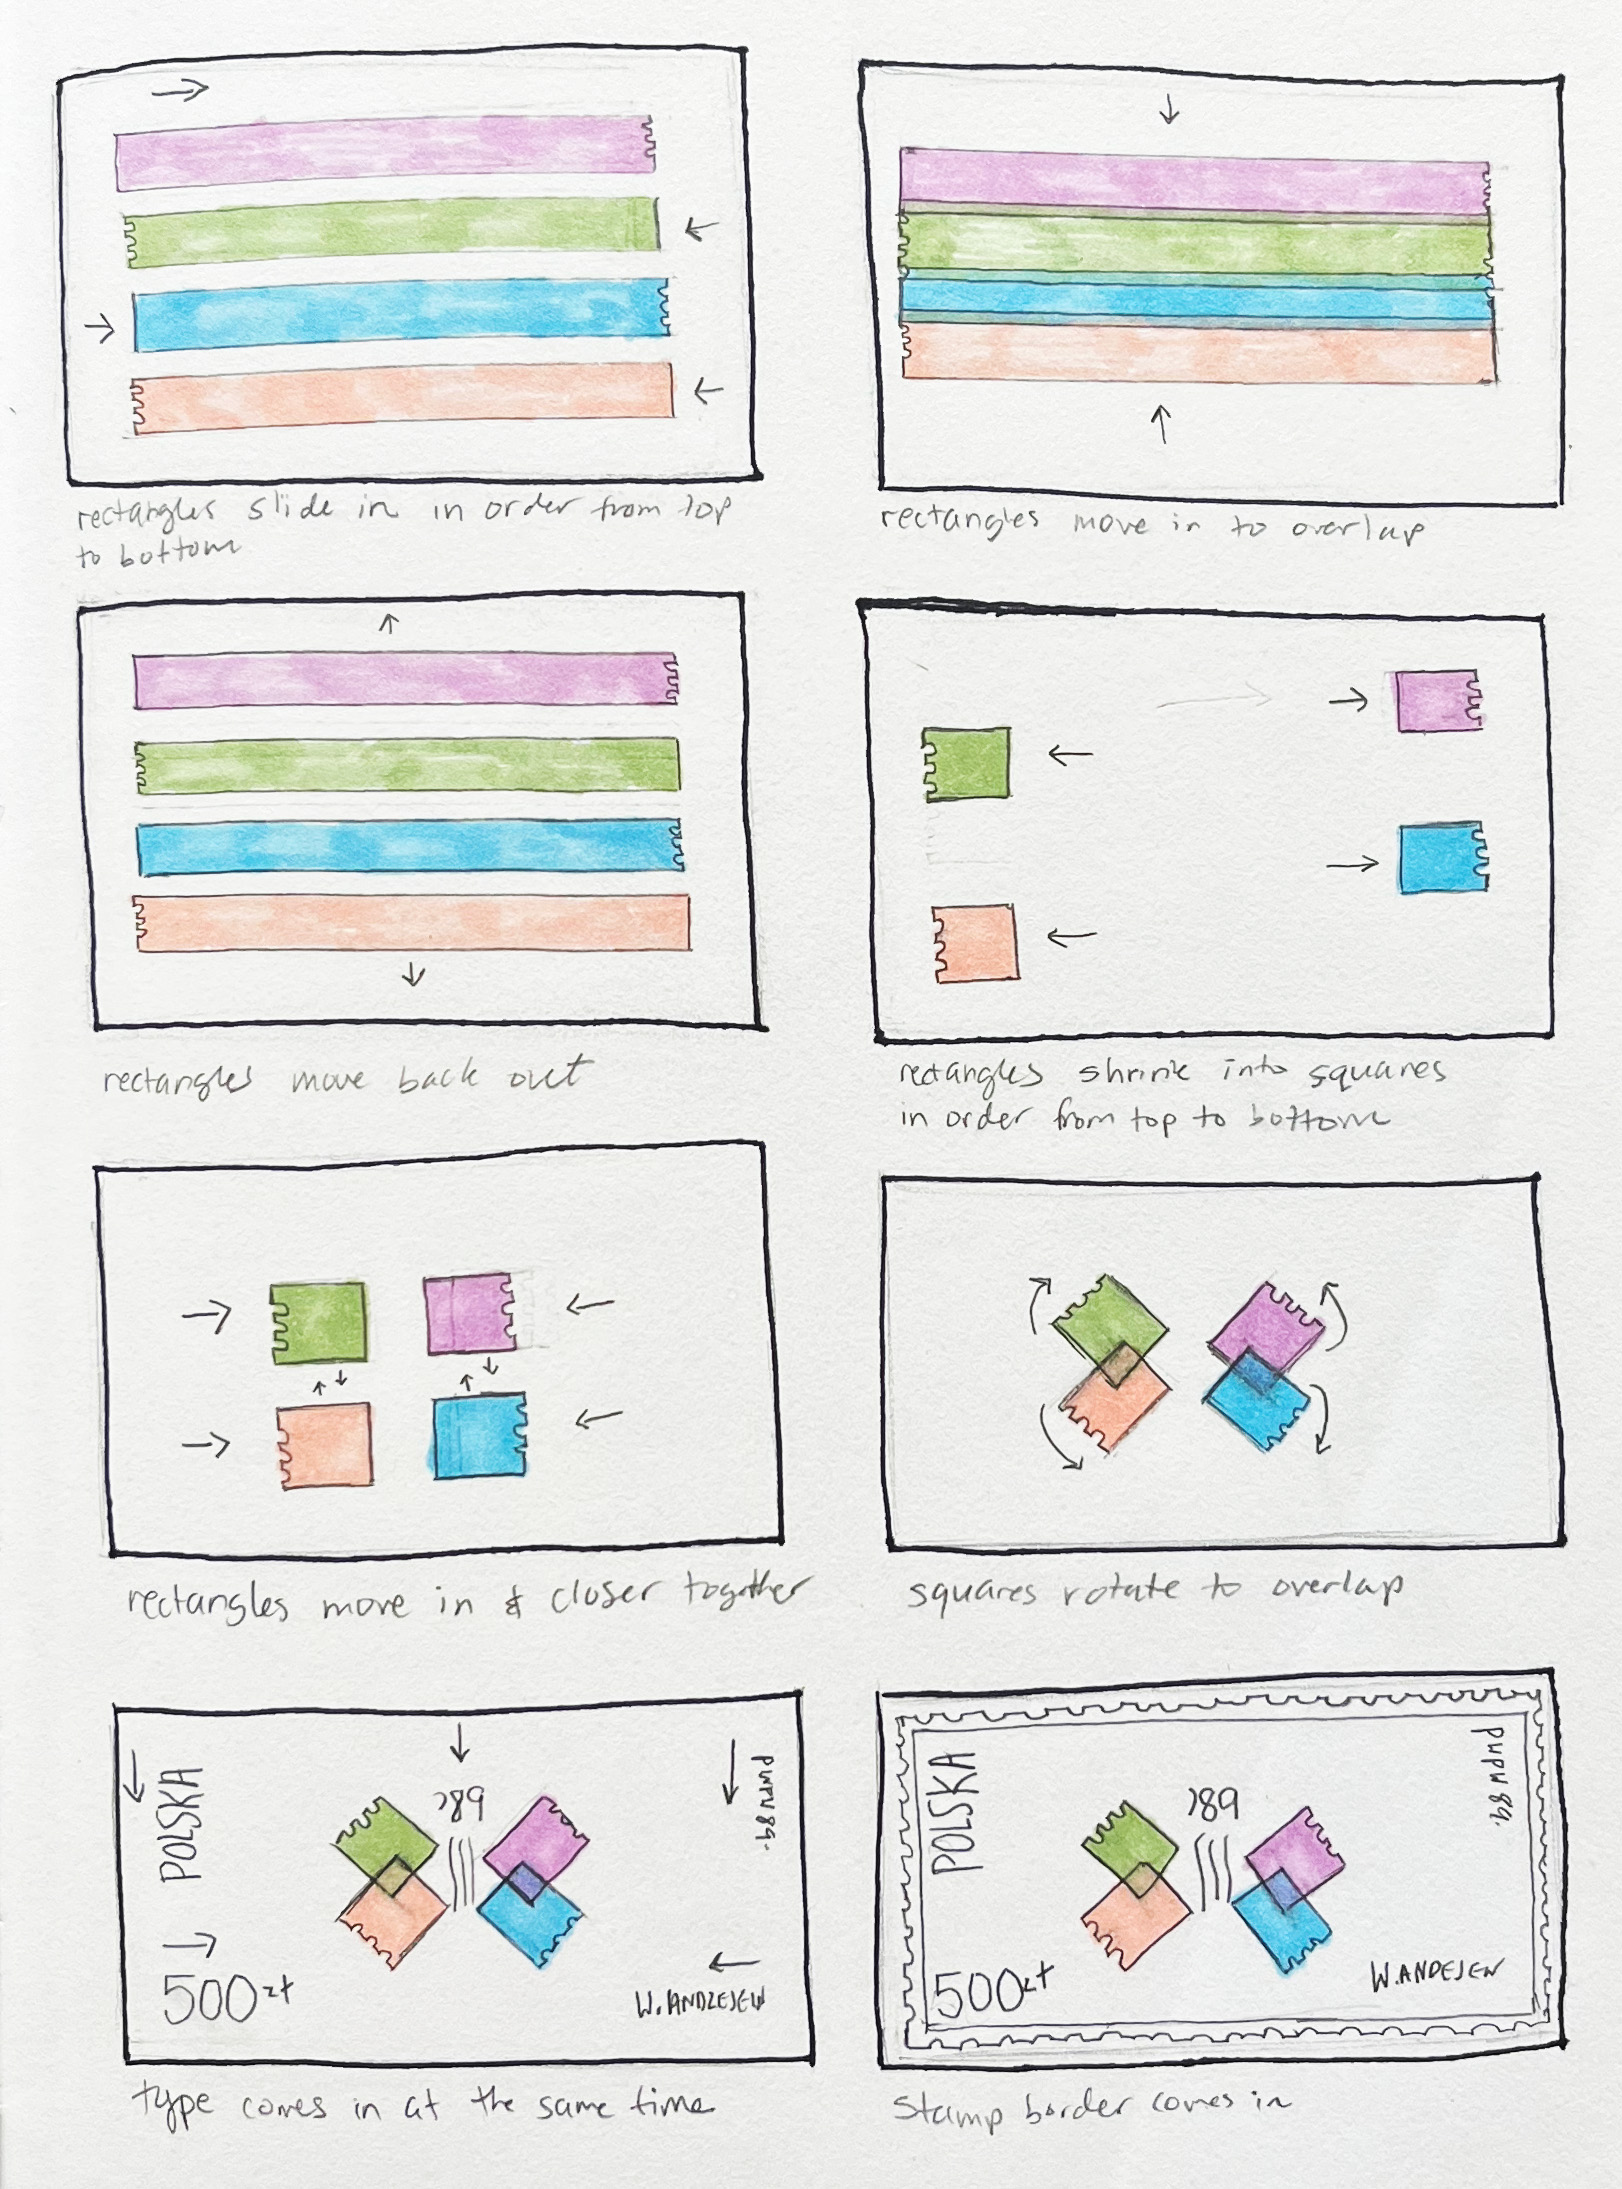 rectangles slide in in order from top
to bottom
rectangles move in to overlap
rectangles move back out
rectangles shrink into squares
in order from top to bottom
rectangles move in & closer together
squares rotate to overlap
POLSKA
'89
PWPW 89.
500zł
W. ANDZEJEW
type comes in at the same time
POLSKA
'89
PWPW 89.
500zł
W. ANDEJEW
stamp border comes in